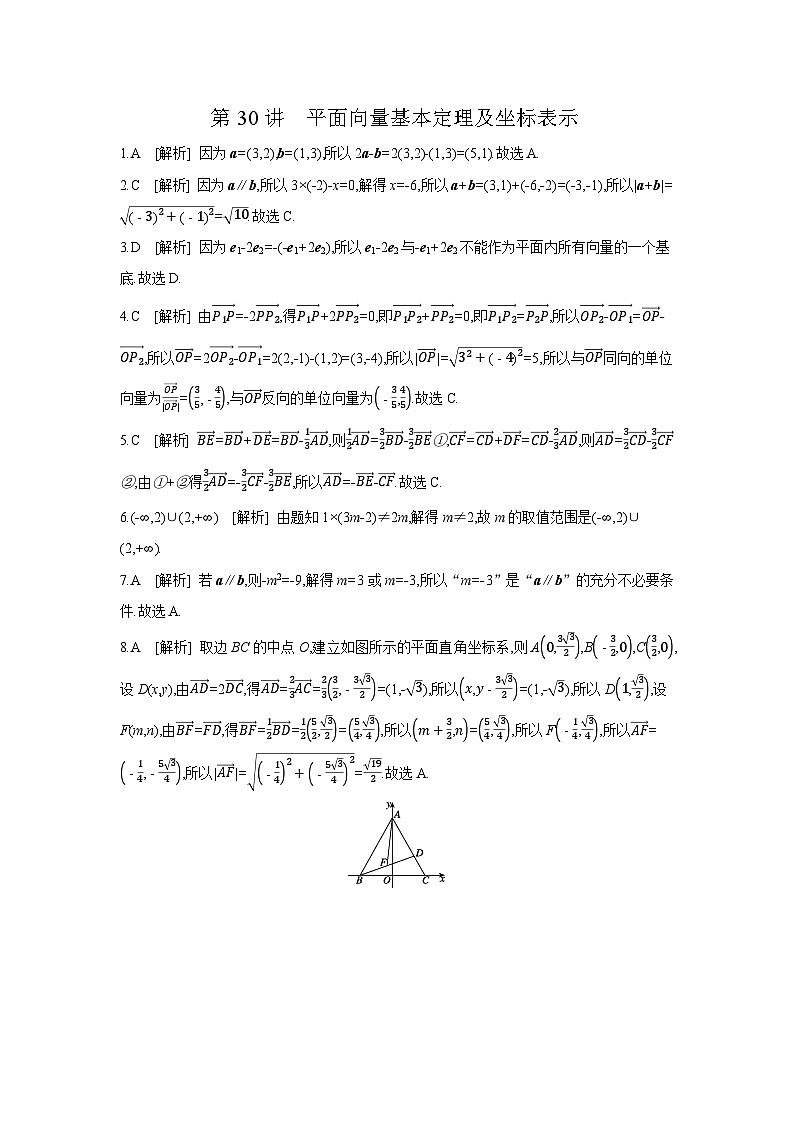 第 30 讲　平面向量基本定理及坐标表示
1.A　[解析] 因为 a=(3,2),b=(1,3),所以 2a-b=2(3,2)-(1,3)=(5,1).故选 A.
2.C　[解析] 因为 a∥b,所以 3×(-2)-x=0,解得 x=-6,所以 a+b=(3,1)+(-6,-2)=(-3,-1),所以|a+b|=
√((-3)²+(-1)²)=√10.故选 C.
3.D　[解析] 因为 e₁-2e₂=-(-e₁+2e₂),所以 e₁-2e₂ 与-e₁+2e₂ 不能作为平面内所有向量的一个基
底.故选 D.
4.C　[解析] 由P₁P→=-2PP₂→,得P₁P→+2PP₂→=0,即P₁P₂→+PP₂→=0,即P₁P₂→=P₂P→,所以OP₂→-OP₁→=OP→-
OP₂→,所以OP→=2OP₂→-OP₁→=2(2,-1)-(1,2)=(3,-4),所以|OP→|=√(3²+(-4)²)=5,所以与OP→同向的单位
向量为OP→/|OP→|=(3/5,-4/5),与OP→反向的单位向量为(-3/5,4/5).故选 C.
5.C　[解析] BE→=BD→+DE→=BD→-1/3AD→,则1/2AD→=3/2BD→-3/2BE→①,CF→=CD→+DF→=CD→-2/3AD→,则AD→=3/2CD→-3/2CF→
②,由①+②得3/2AD→=-3/2CF→-3/2BE→,所以AD→=-BE→-CF→.故选 C.
6.(-∞,2)∪(2,+∞)　[解析] 由题知 1×(3m-2)≠2m,解得 m≠2,故 m 的取值范围是(-∞,2)∪
(2,+∞).
7.A　[解析] 若 a∥b,则-m²=-9,解得 m=3 或 m=-3,所以“m=-3”是“a∥b”的充分不必要条
件.故选 A.
8.A　[解析] 取边 BC 的中点 O,建立如图所示的平面直角坐标系,则 A(0,3√3/2),B(-3/2,0),C(3/2,0),
设 D(x,y),由AD→=2DC→,得AD→=2/3AC→=2/3(3/2,-3√3/2)=(1,-√3),所以(x,y-3√3/2)=(1,-√3),所以 D(1,√3/2),设
F(m,n),由BF→=FD→,得BF→=1/2BD→=1/2(5/2,√3/2)=(5/4,√3/4),所以(m+3/2,n)=(5/4,√3/4),所以 F(-1/4,√3/4),所以AF→=
(-1/4,-5√3/4),所以|AF→|=√((-1/4)²+(-5√3/4)²)=√19/2.故选 A.
y
A
D
F
B O C x